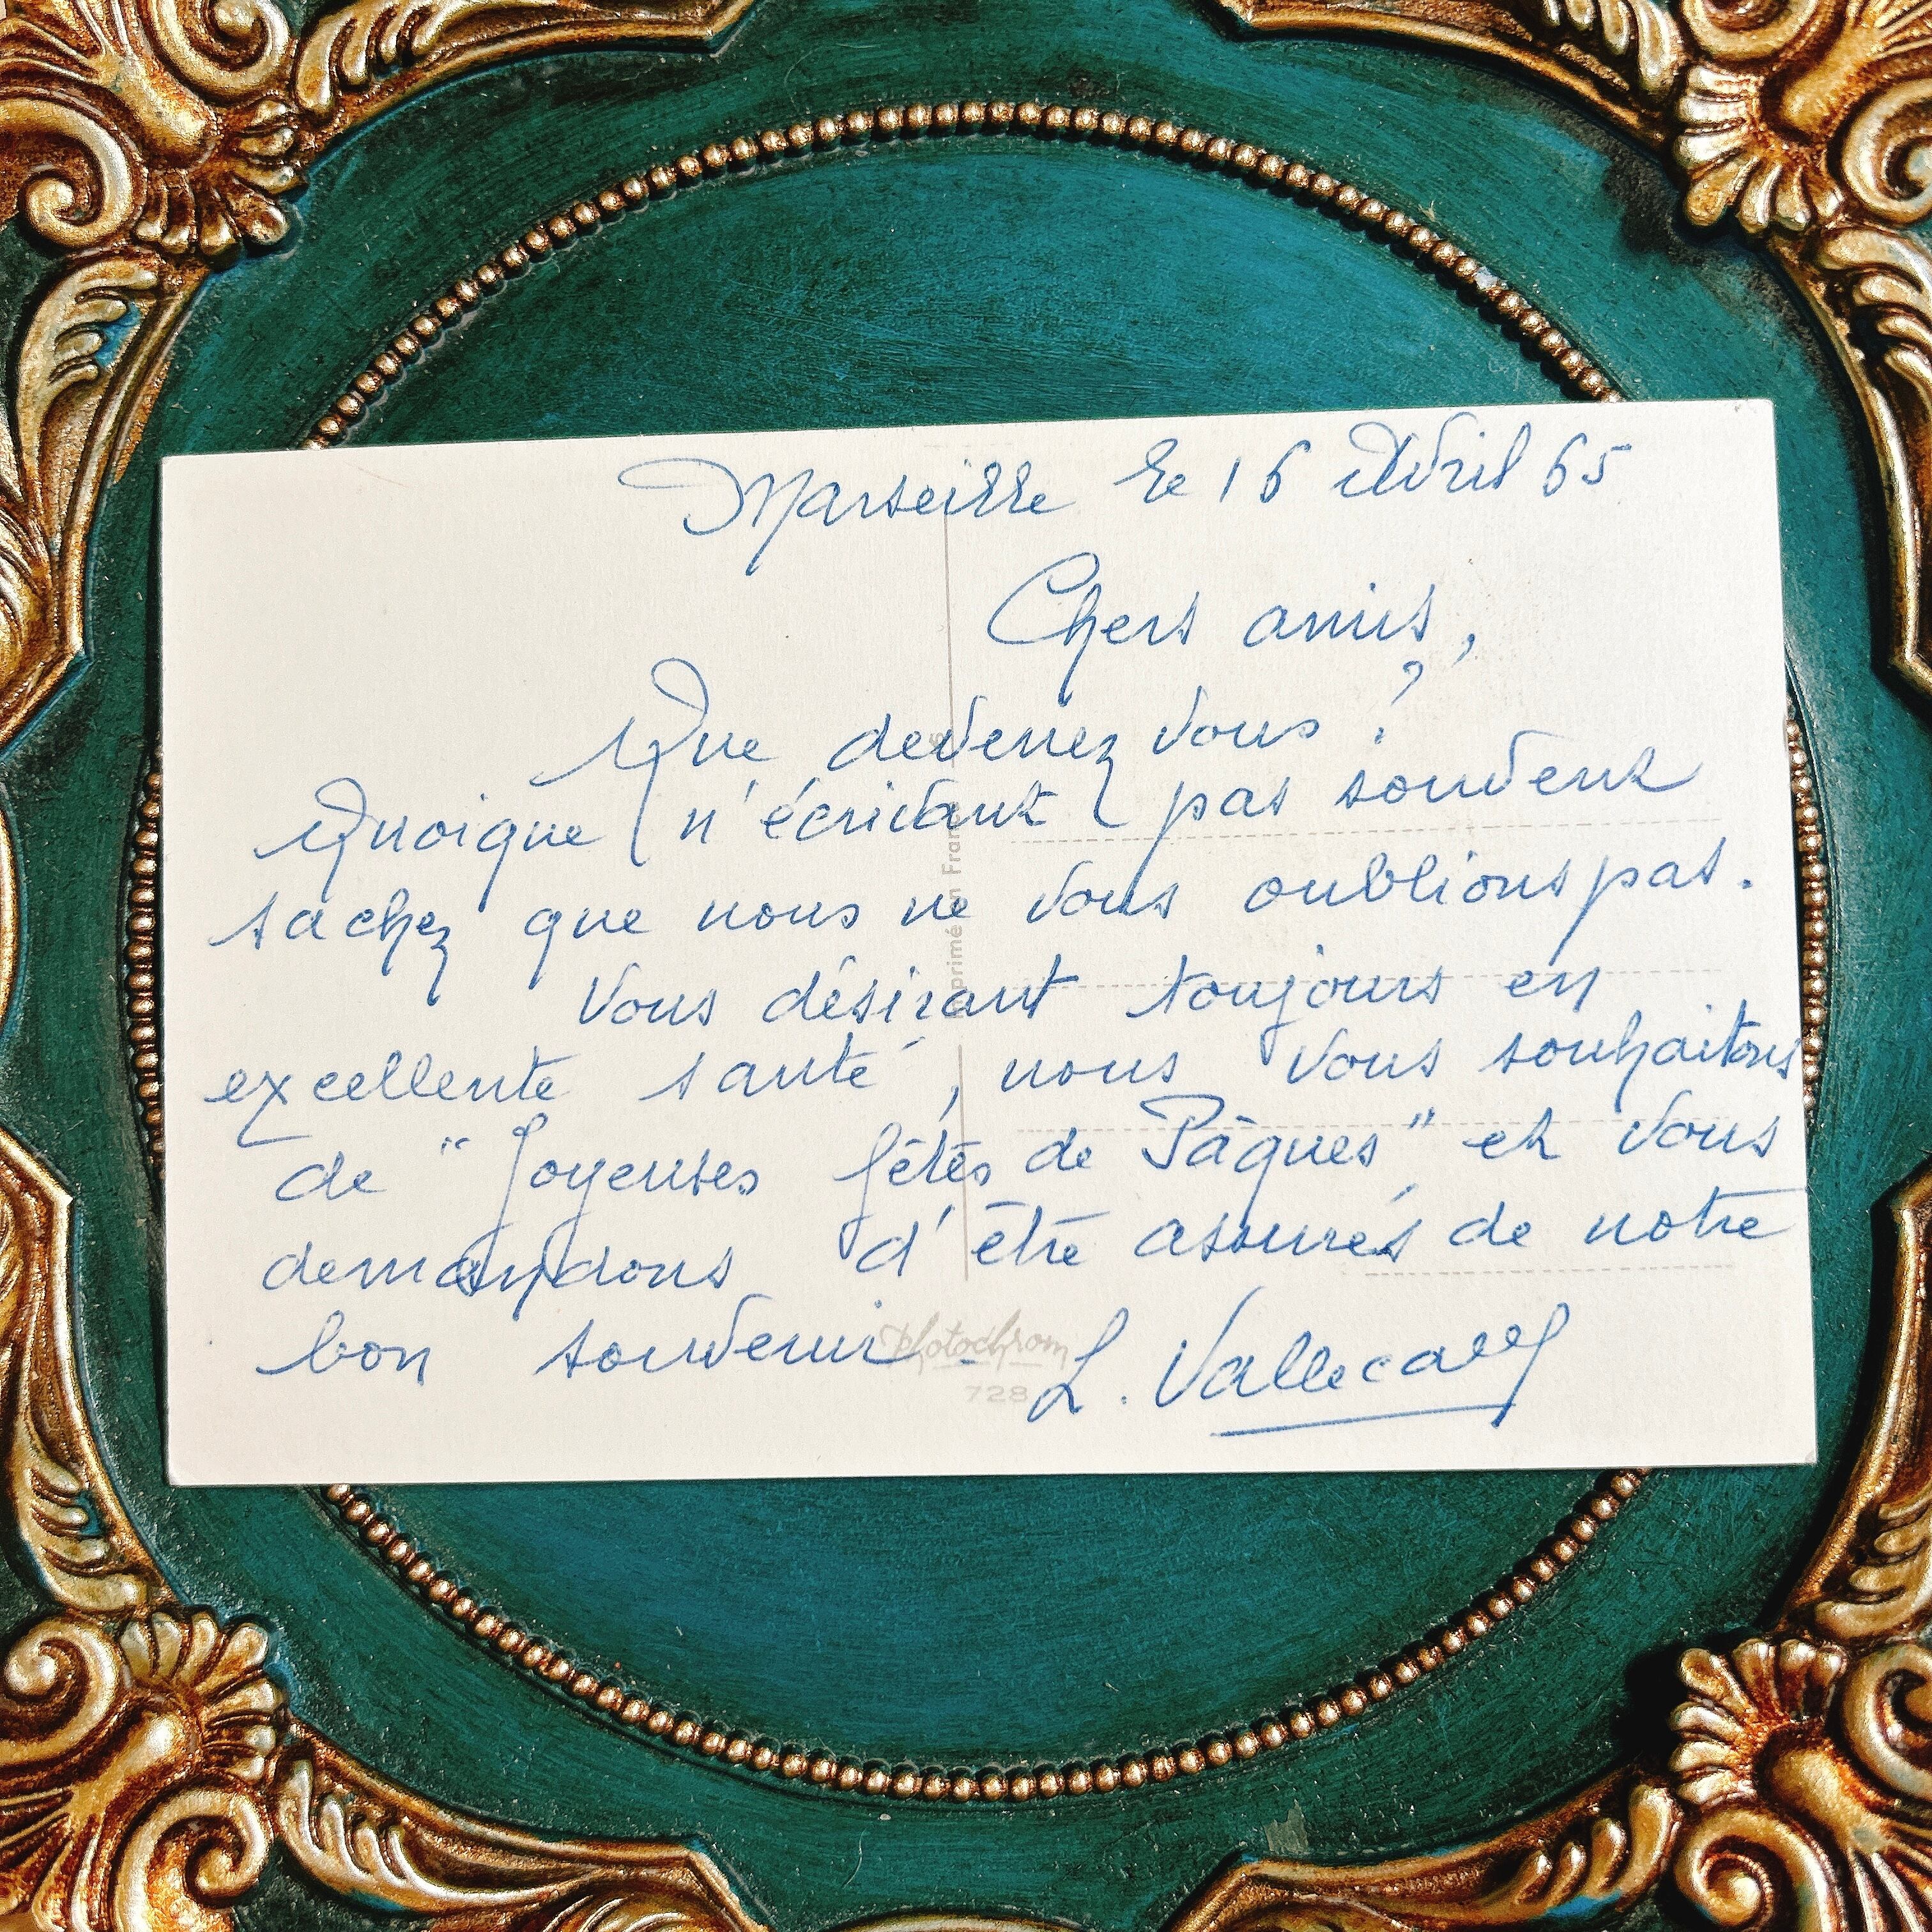 Marseille le 16 Avril 65
Chers amis,
Que devenez vous ?
Quoique n'écrivant pas souvent
sachez que nous ne vous oublions pas.
Vous désirant toujours en
excellente santé, nous vous souhaitons
de "Joyeuses fêtes de Pâques" et vous
demandons d'être assurés de notre
bon souvenir.
L.
Imprimé en France
Photochrom
728